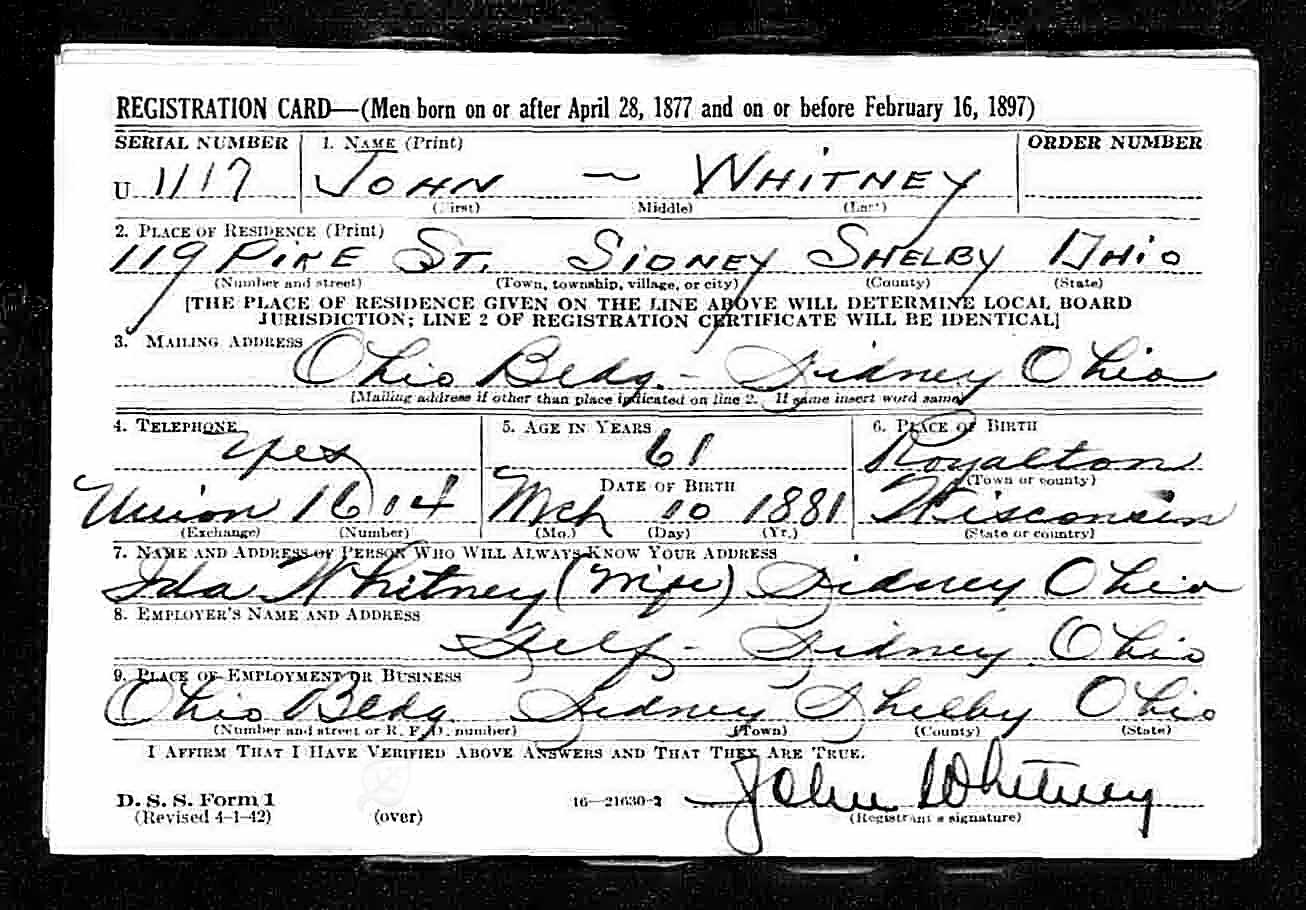 REGISTRATION CARD—(Men born on or after April 28, 1877 and on or before February 16, 1897)
SERIAL NUMBER 1. NAME (Print) ORDER NUMBER
U 1117 JOHN — WHITNEY
(First) (Middle) (Last)
2. PLACE OF RESIDENCE (Print)
119 PIKE ST. SIDNEY SHELBY OHIO
(Number and street) (Town, township, village, or city) (County) (State)
[THE PLACE OF RESIDENCE GIVEN ON THE LINE ABOVE WILL DETERMINE LOCAL BOARD
JURISDICTION; LINE 2 OF REGISTRATION CERTIFICATE WILL BE IDENTICAL]
3. MAILING ADDRESS
Ohio Bldg. - Sidney Ohio
[Mailing address if other than place indicated on line 2. If same insert word same]
4. TELEPHONE 5. AGE IN YEARS 6. PLACE OF BIRTH
Yes 61 Royalton
DATE OF BIRTH (Town or county)
Union 1604 Mch 10 1881 Wisconsin
(Exchange) (Number) (Mo.) (Day) (Yr.) (State or country)
7. NAME AND ADDRESS OF PERSON WHO WILL ALWAYS KNOW YOUR ADDRESS
Ida Whitney (Wife) Sidney Ohio
8. EMPLOYER'S NAME AND ADDRESS
Self - Sidney Ohio
9. PLACE OF EMPLOYMENT OR BUSINESS
Ohio Bldg. Sidney Shelby Ohio
(Number and street or R. F. D. number) (Town) (County) (State)
I AFFIRM THAT I HAVE VERIFIED ABOVE ANSWERS AND THAT THEY ARE TRUE.
D. S. S. Form 1 16—21630-2 John Whitney
(Revised 4-1-42) (over) (Registrant's signature)